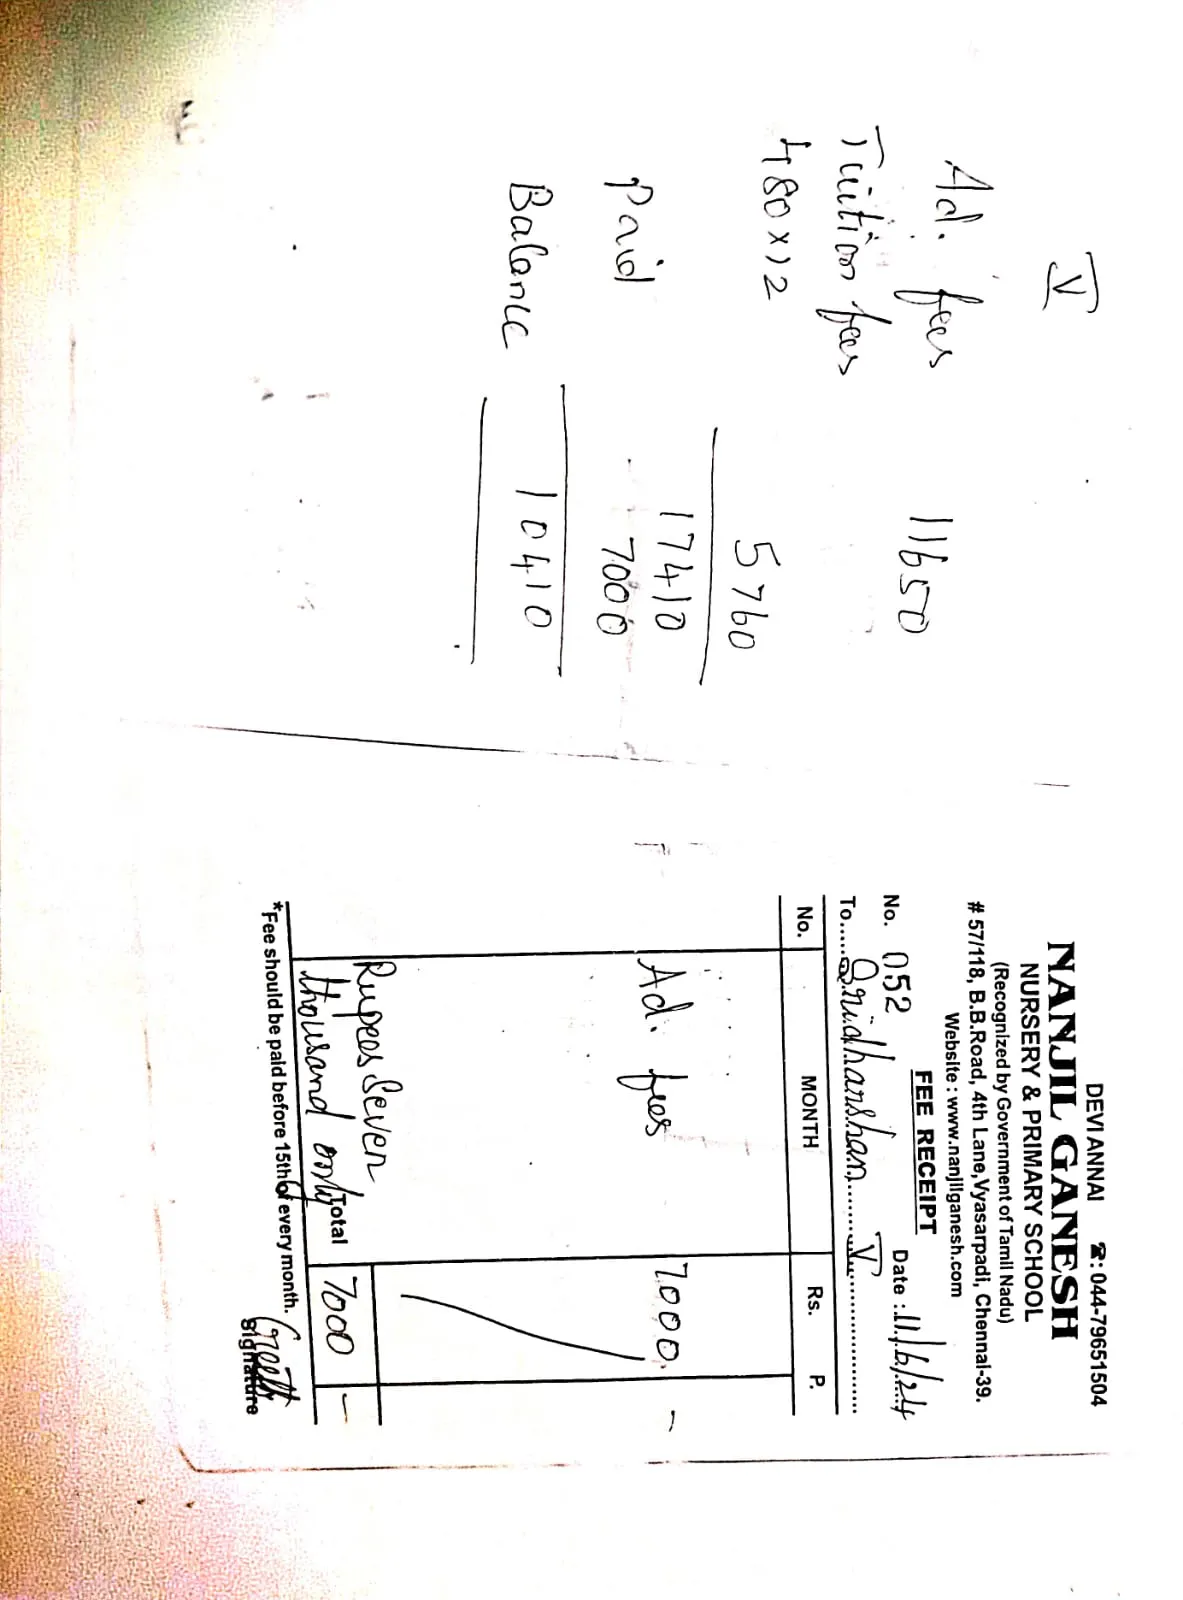 V
Ad. fees 11650
Tuition fees
480x12 5760
17410
Paid 7000
Balance 10410
DEVI ANNAI ☎: 044-79651504
NANJIL GANESH
NURSERY & PRIMARY SCHOOL
(Recognized by Government of Tamil Nadu)
# 57/118, B.B.Road, 4th Lane, Vyasarpadi, Chennai-39.
Website : www.nanjilganesh.com
FEE RECEIPT
No. 052 Date : 11/6/24
To..... Sridharshan V
No. MONTH Rs. P.
Ad. fees 7000. –
Rupees Seven
thousand only Total 7000 –
*Fee should be paid before 15th of every month.
Signature